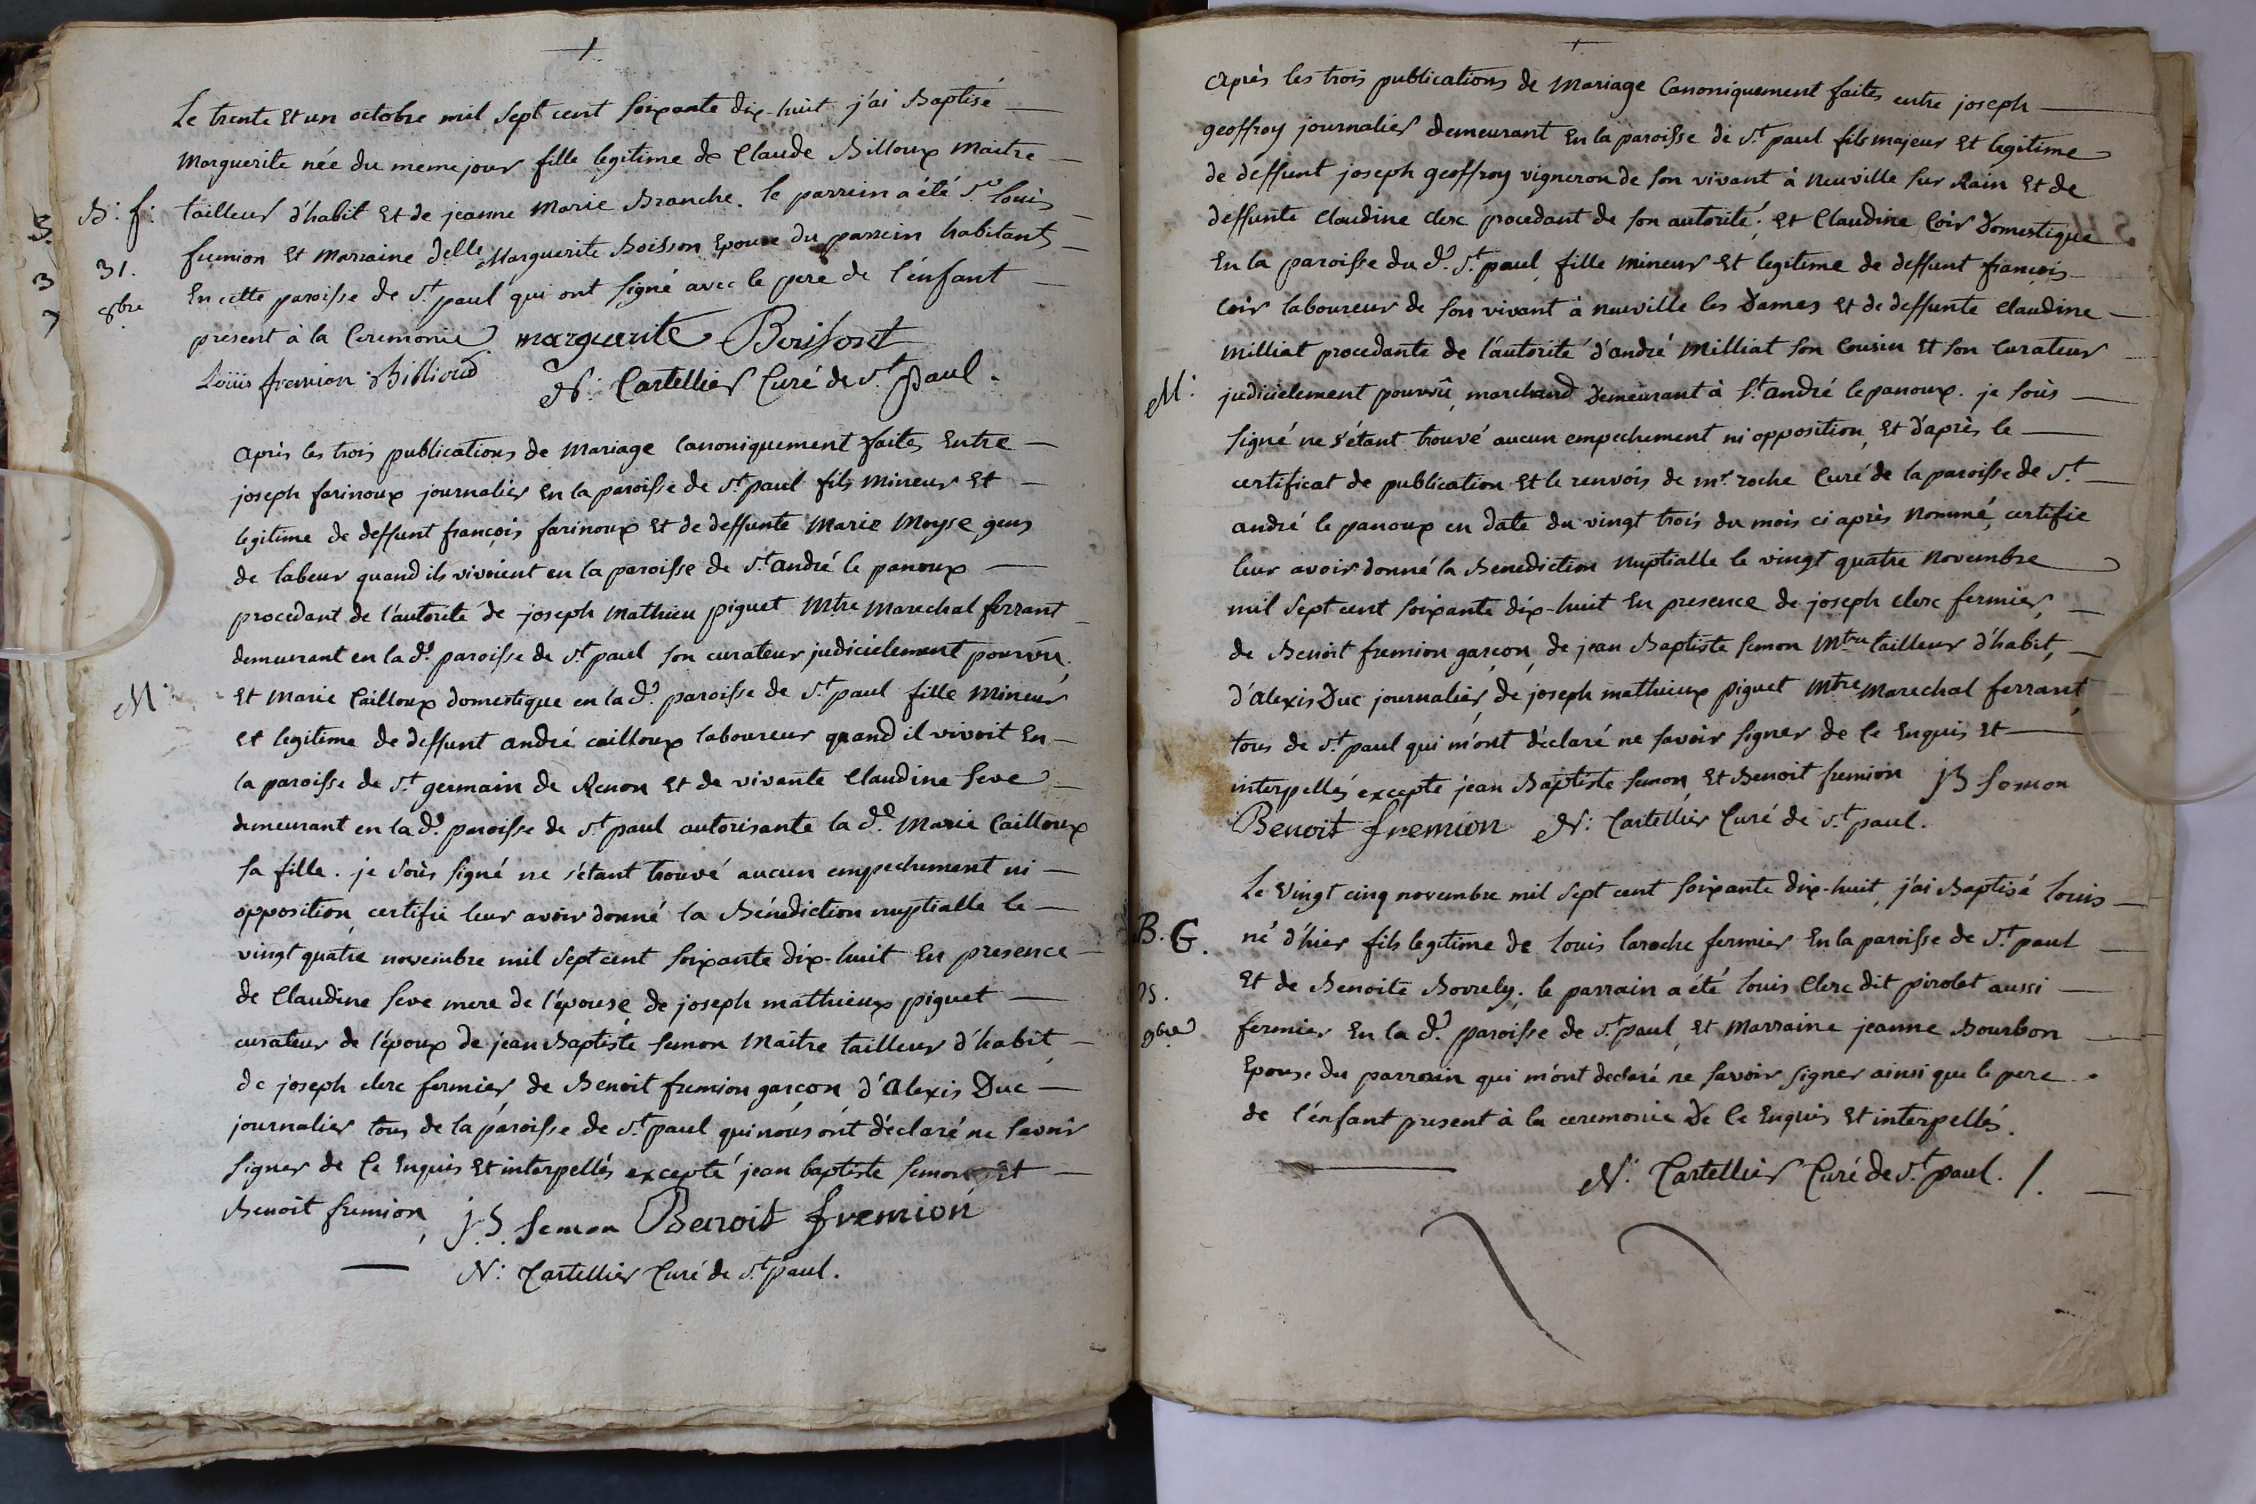 Le trente et un octobre mil sept cent soixante dix-huit j'ai Baptisé
Marguerite née du meme jour fille legitime de Claude Billoux Maitre
B: f: tailleur d'habit et de jeanne Marie Branche. le parrein a été Sr. louis
fremion et Marraine Delle. Marguerite Boisson Epouse du parrein habitants
31. En cette paroisse de St. paul qui ont signé avec le pere de l'énfant
8bre
present à la Ceremonie marguerite Boisson
Loüis fremion Billioud N: Cartellier Curé de St. paul.
après les trois publications de Mariage Canoniquement faites Entre
joseph farinoux journalier En la paroisse de St. paul fils Mineur Et
legitime de deffunt françois farinoux Et de deffunte Marie Moyse gens
de labeur quand ils vivoient en la paroisse de St. andré le panoux
procedant de l'autorité de joseph Mathieu piguet Mtre Marechal ferrant
demeurant en la de. paroisse de St. paul son curateur judicielement pourvû,
M: Et Marie Cailloux domestique en la de. paroisse de St. paul fille Mineur
Et legitime de deffunt andré cailloux laboureur quand il vivoit En
la paroisse de St. germain de Renon Et de vivante Claudine Seve
demeurant en la de. paroisse de St. paul autorisante la de. Marie Cailloux
sa fille. je soûs signé ne s'étant trouvé aucun empechement ni
opposition certifie leur avoir donné la Bénédiction nuptialle le
vingt quatre novembre mil sept cent soixante dix-huit En presence
de Claudine Seve mere de l'épouse, de joseph mathieux piguet
curateur de l'époux de jean Baptiste semon Maitre tailleur d'habit,
de joseph clerc fermier, de Benoit fremion garçon d'Alexis Duc
journalier tous de la paroisse de St. paul qui nous ont déclaré ne savoir
signer de Ce Enquis Et interpellés excepté jean baptiste semon Et
Benoit fremion, j. B. semon Benoit fremion
N: Cartellier Curé de St. paul.
après les trois publications de Mariage Canoniquement faites entre joseph
geoffroy journalier demeurant En la paroisse de St. paul fils majeur Et legitime
de deffunt joseph geoffroy vigneron de son vivant à Neuville sur Rain Et de
deffunte Claudine clerc procedant de son autorité; et Claudine Coir Domestique
En la paroisse du d. St. paul, fille mineur Et legitime de deffunt françois
Coir laboureur de son vivant à neuville les Dames Et de deffunte Claudine
Milliat procedante de l'autorité d'andré Milliat son Cousin Et son Curateur
M: judicielement pourvû, marchand Demeurant à St. andré le panoux. je soûs
signé ne s'étant trouvé aucun empechement ni opposition, Et d'après le
certificat de publication Et le renvois de mr. roche Curé de la paroisse de St.
andré le panoux en date du vingt trois du mois ci après Nommé, certifie
leur avoir donné la Benediction Nuptialle le vingt quatre Novembre
mil sept cent soixante dix-huit En presence de joseph clerc fermier,
de Benoit fremion garçon, de jean Baptiste semon Mtre tailleur d'habit,
d'Alexis Duc journalier, de joseph mathieux piguet Mtre Marechal ferrant,
tous de St. paul qui m'ont déclaré ne savoir signer de Ce Enquis Et
interpellés excepté jean Baptiste semon, Et Benoit fremion JB semon
Benoit fremion N: Cartellier Curé de St. paul.
Le vingt cinq novembre mil sept cent soixante dix-huit, j'ai Baptisé louis
B. G. né d'hier fils legitime de louis laroche fermier En la paroisse de St. paul
25. Et de Benoite Bovrely; le parrain a été louis Clerc dit pirolet aussi
9bre fermier En la de. paroisse de St. paul, Et Marraine jeanne Bourbon
Epouse du parrain qui m'ont declaré ne savoir signer ainsi que le pere
de l'énfant present à la ceremonie De Ce Enquis Et interpellés.
N: Cartellier Curé de St. paul. /.